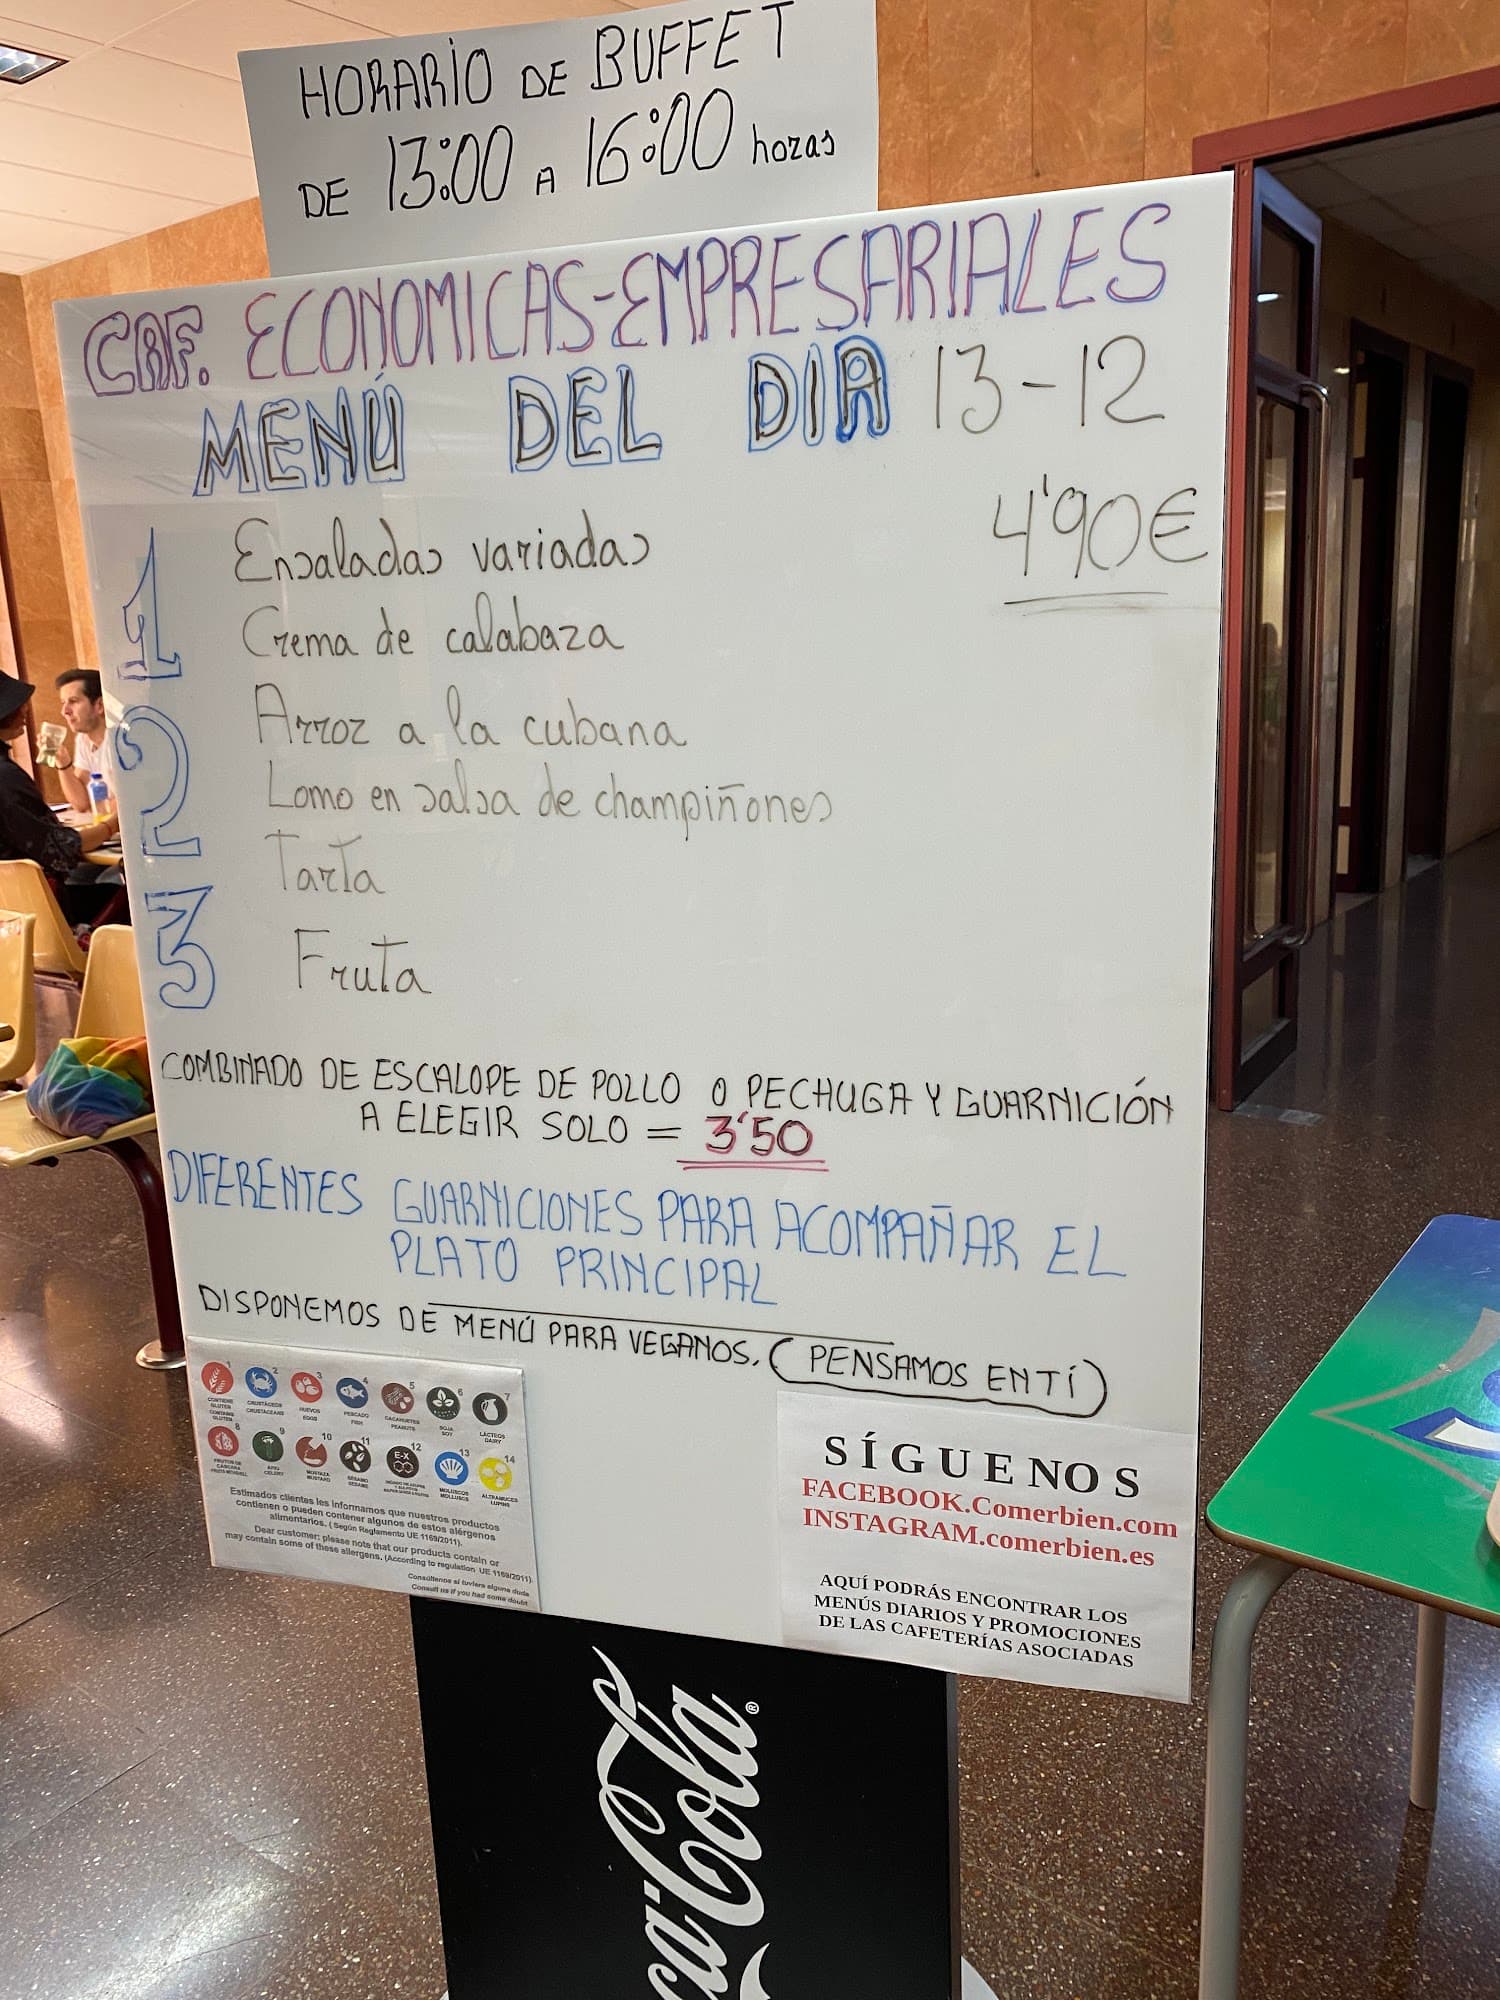 HORARIO DE BUFFET
DE 13:00 A 16:00 horas
CAF. ECONOMICAS-EMPRESARIALES
MENÚ DEL DIA 13-12
4'90€
1 Ensaladas variadas
Crema de calabaza
2 Arroz a la cubana
Lomo en salsa de champiñones
Tarta
3 Fruta
COMBINADO DE ESCALOPE DE POLLO O PECHUGA Y GUARNICIÓN
A ELEGIR SOLO = 3'50
DIFERENTES GUARNICIONES PARA ACOMPAÑAR EL
PLATO PRINCIPAL
DISPONEMOS DE MENÚ PARA VEGANOS. (PENSAMOS EN TÍ)
1 2 3 4 5 6 7
CONTIENE GLUTEN CONTAINS GLUTEN
CRUSTÁCEOS CRUSTACEANS
HUEVOS EGGS
PESCADO FISH
CACAHUETES PEANUTS
SOJA SOY
LÁCTEOS DAIRY
8 9 10 11 12 13 14
FRUTOS DE CÁSCARA
APIO CELERY
MOSTAZA MUSTARD
SÉSAMO SESAME
E-X
MOLUSCOS MOLLUSCS
ALTRAMUCES LUPINS
Estimados clientes les informamos que nuestros productos
contienen o pueden contener algunos de estos alérgenos
alimentarios. (Según Reglamento UE 1169/2011).
Dear customer: please note that our products contain or
may contain some of these allergens. (According to regulation UE 1169/2011)
Consúltenos si tuviera alguna duda
Consult us if you had some doubt
SÍGUENOS
FACEBOOK.Comerbien.com
INSTAGRAM.comerbien.es
AQUÍ PODRÁS ENCONTRAR LOS
MENÚS DIARIOS Y PROMOCIONES
DE LAS CAFETERÍAS ASOCIADAS
ca-Cola®